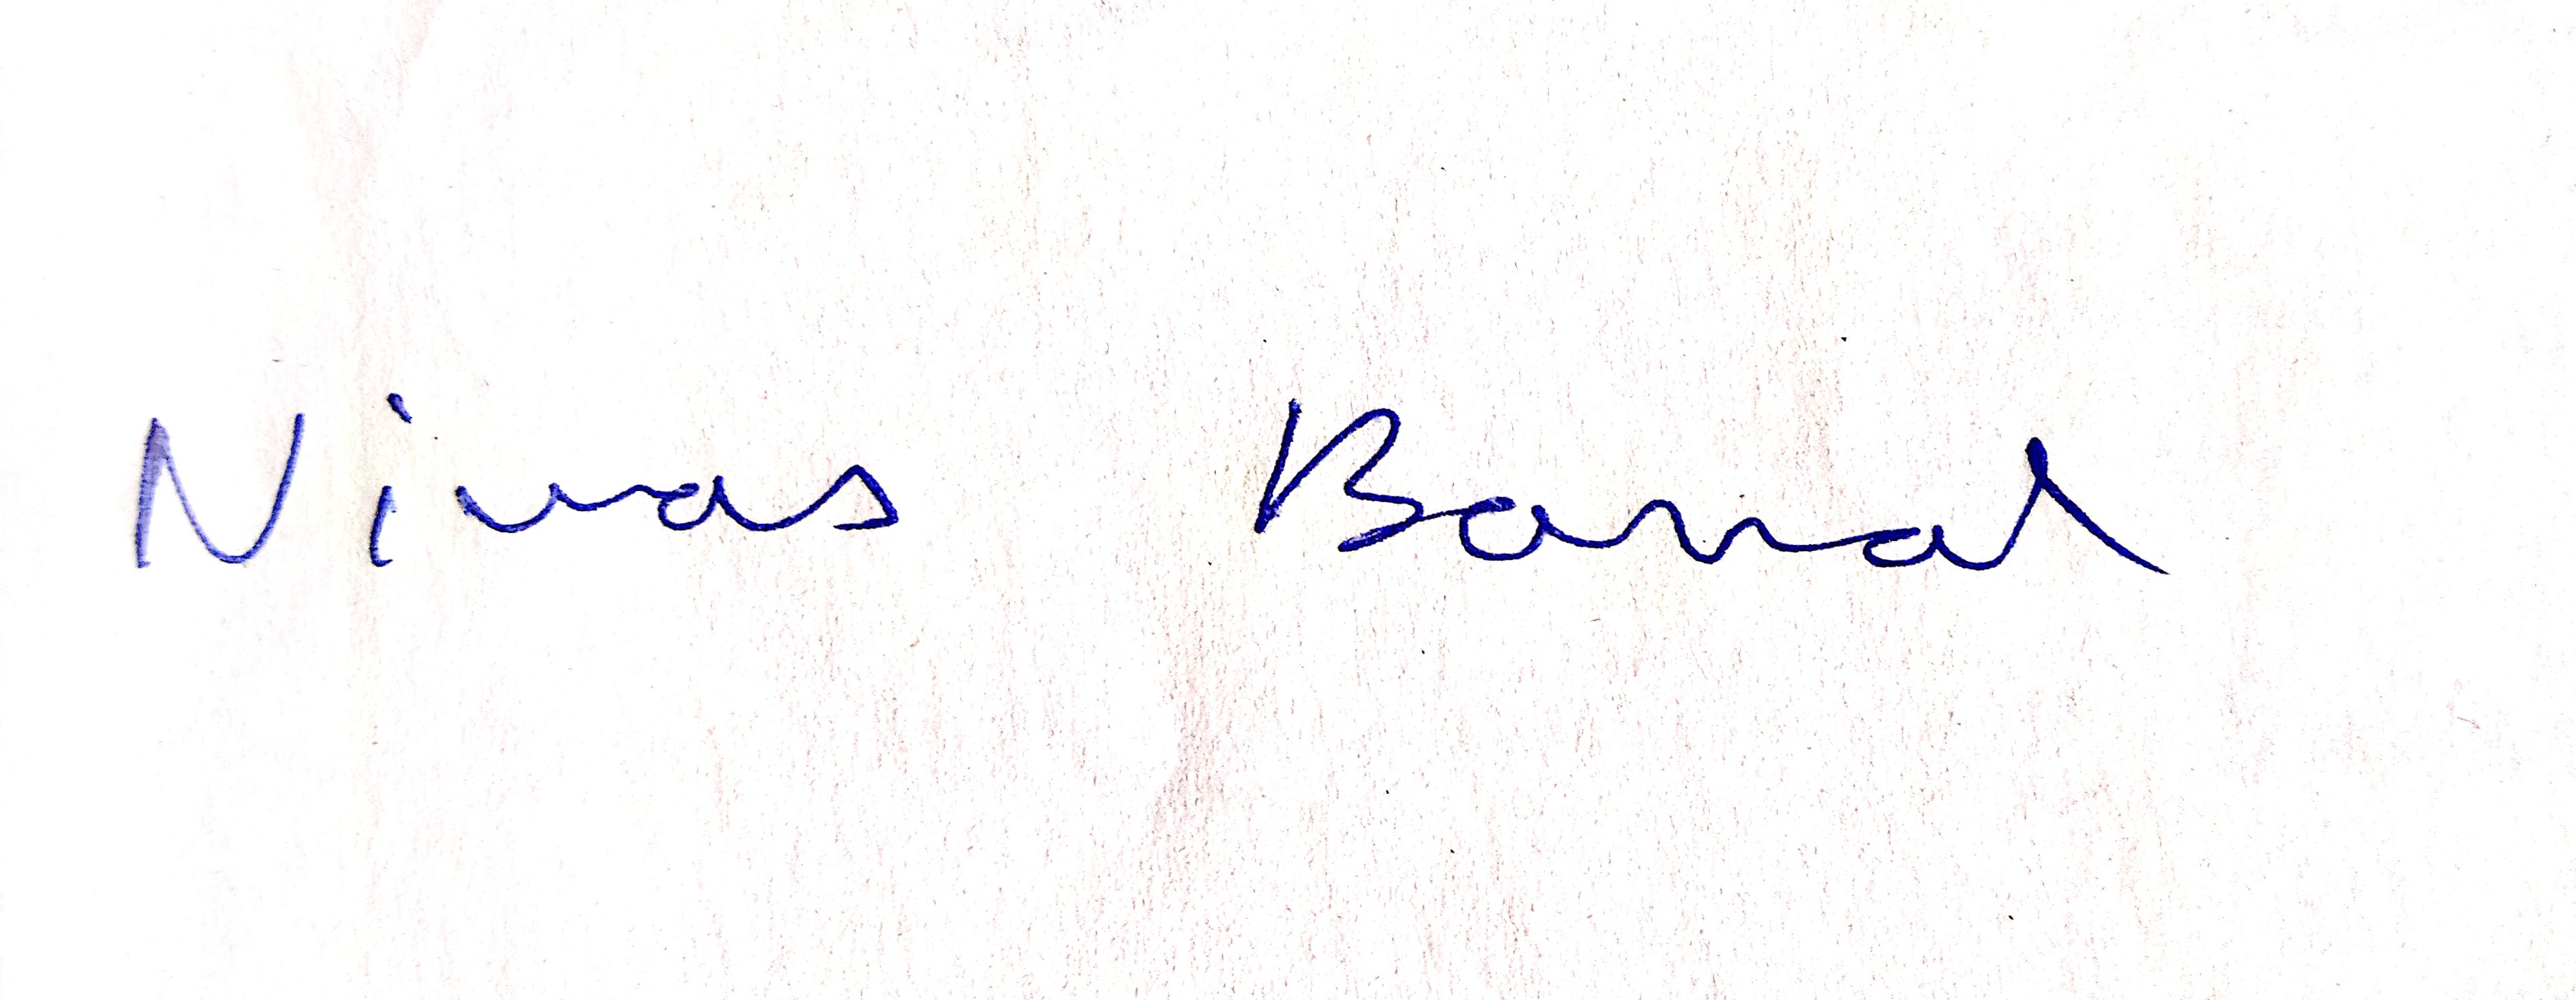 Nivas Bansal